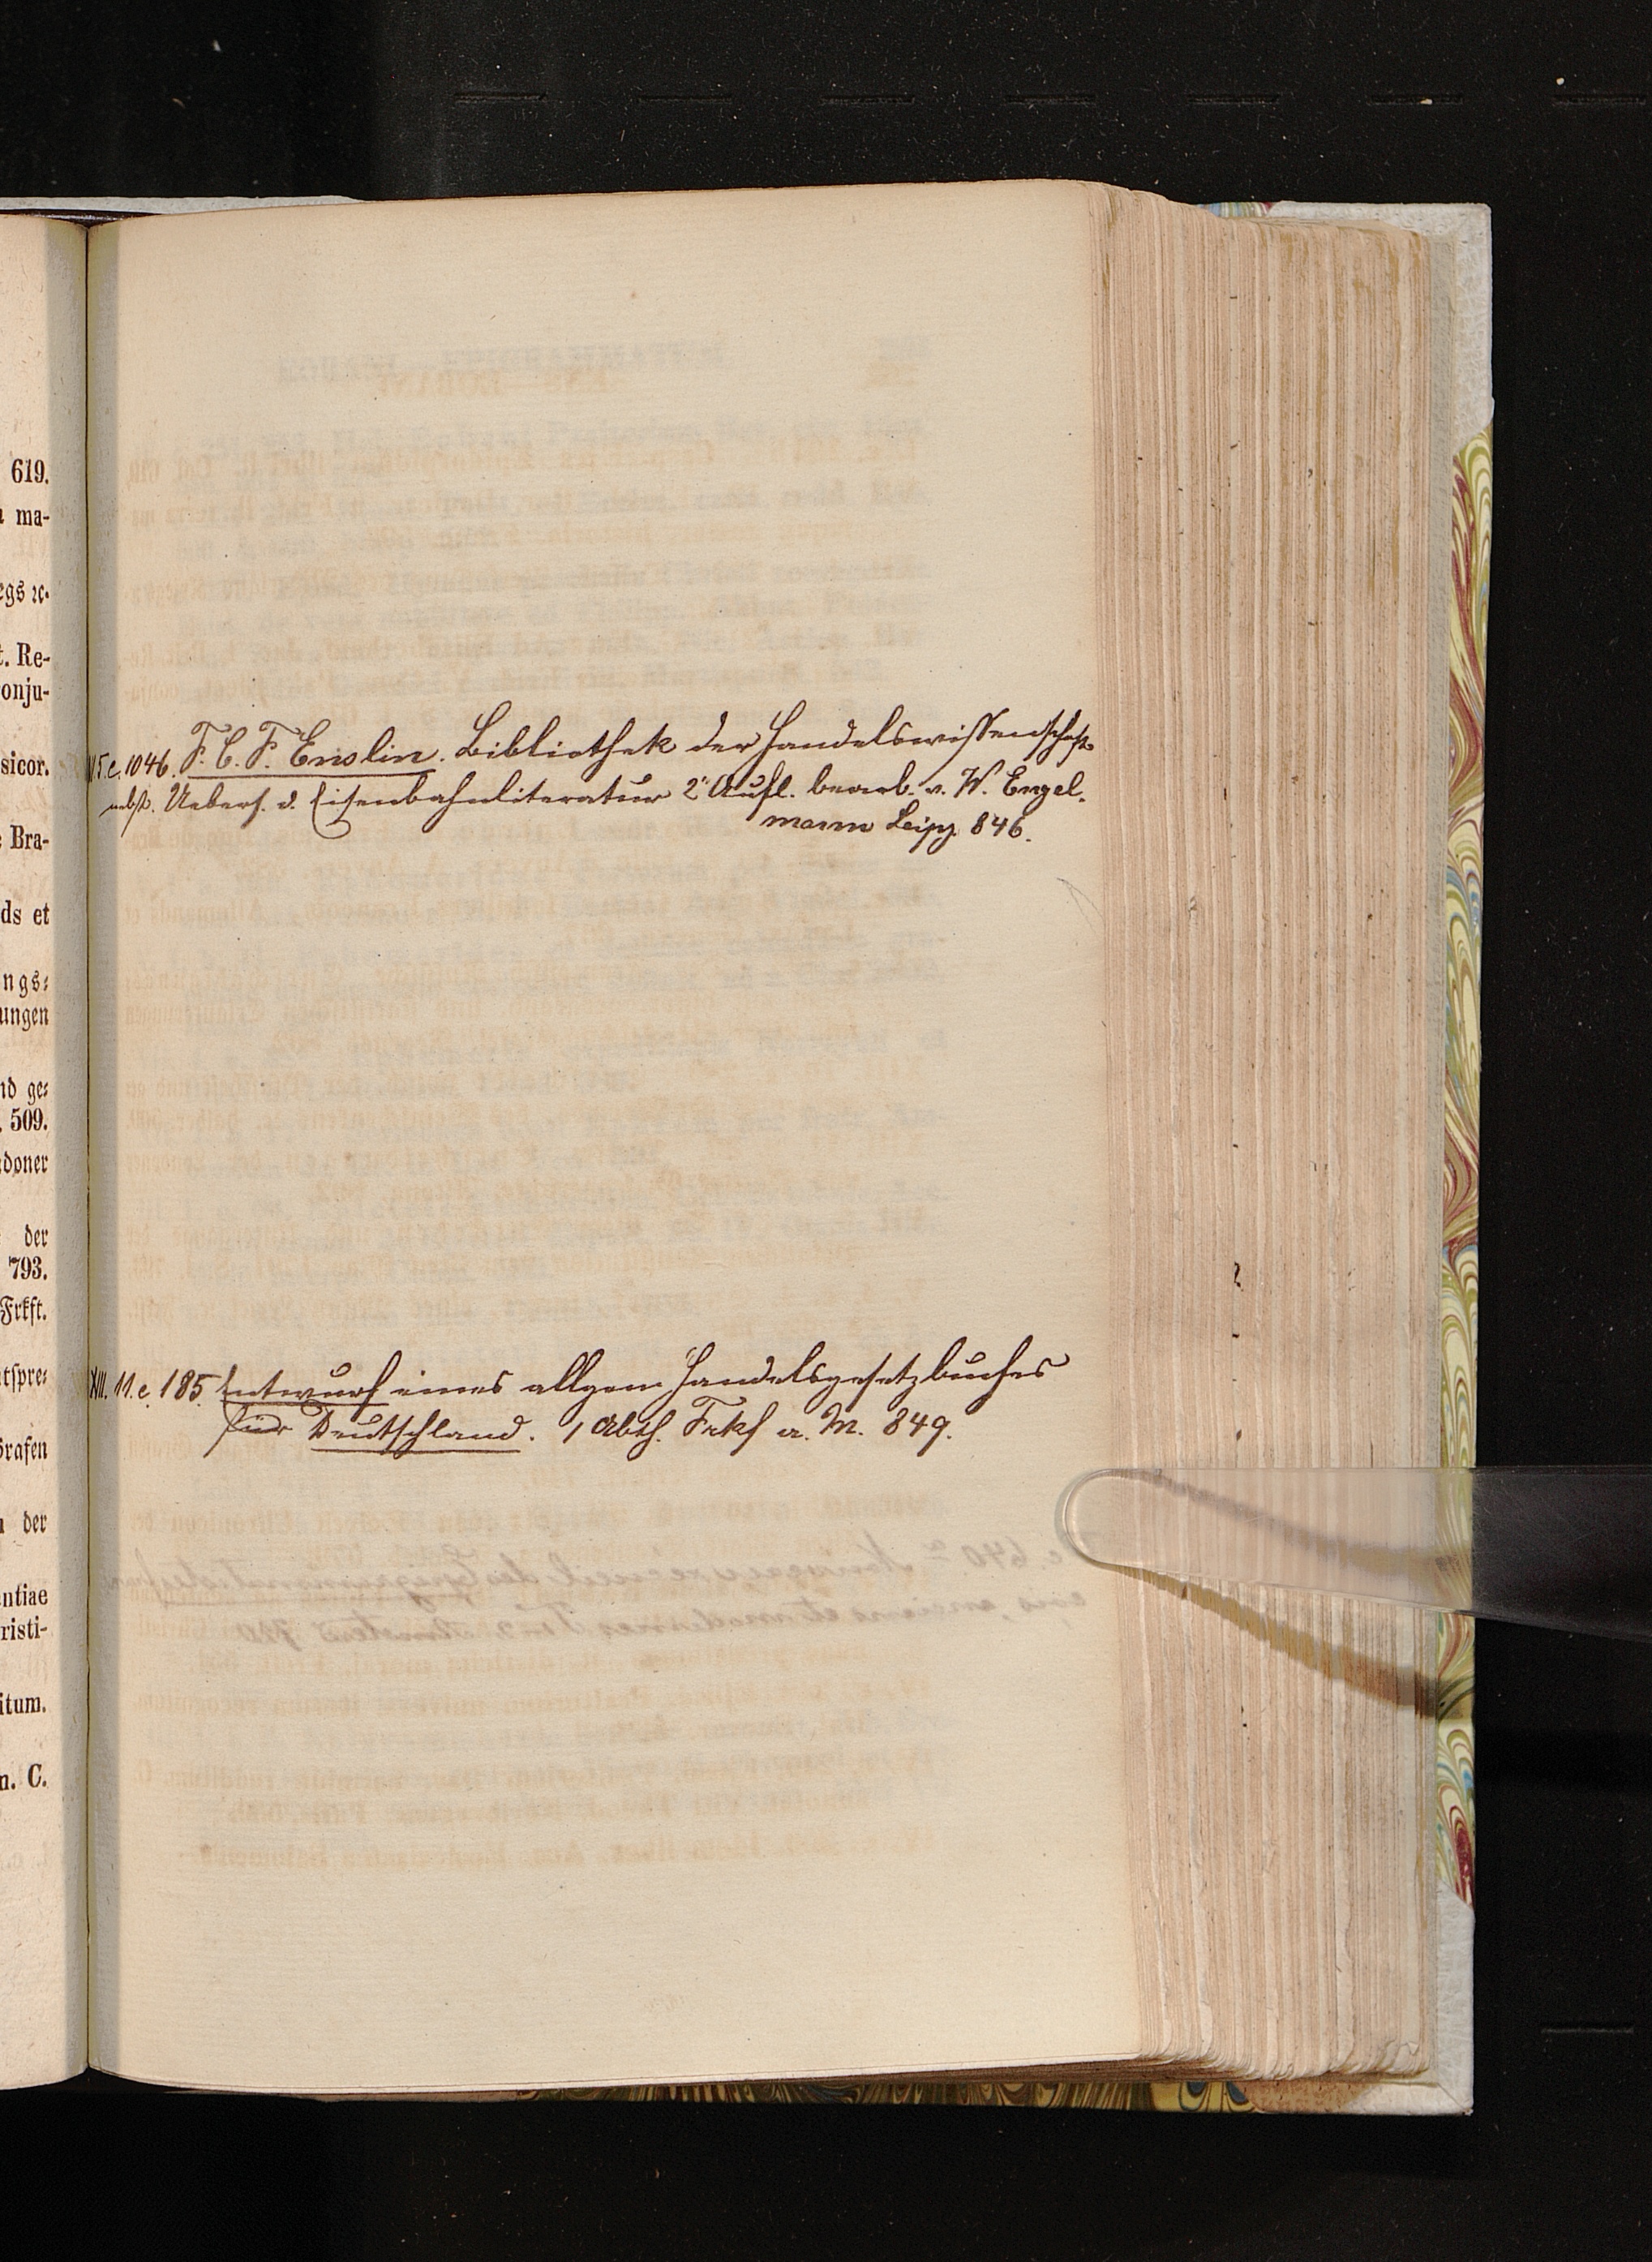 619.
ma-
egs ꝛc.
t. Re-
onju-
sicor.
Bra-
ds et
ngs⸗
ungen
nd ge⸗
509.
doner
der
793.
Frkft.
tspre⸗
Grafen
der
entiae
risti-
itum.
n. C.
5.c. 1046. F. C. F. Enslin. Bibliothek der Handelswissenschaft
nebst. Uebers. d. Eisenbahnliteratur 2" Aufl. bearb. v. W. Engel-
mann Leipz 846.
XIII. 11.c. 185. Entwurf eines allgem Handelsgesetzbuches
für Deutschland. 1 Abth. Frkf a. M. 849.